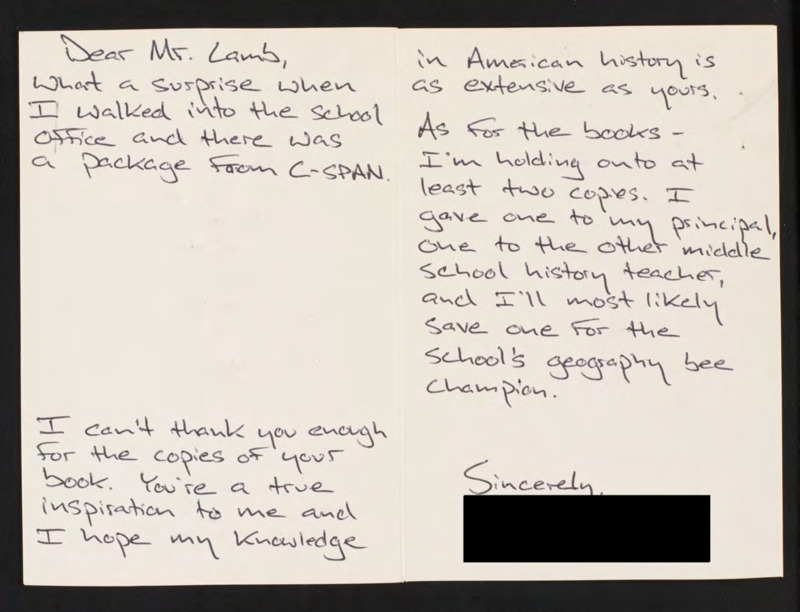 Dear Mr. Lamb,
What a surprise when
I walked into the school
office and there was
a package from C-SPAN.
I can't thank you enough
for the copies of your
book. You're a true
inspiration to me and
I hope my knowledge
in American history is
as extensive as yours.
As for the books -
I'm holding onto at
least two copies. I
gave one to my principal,
one to the other middle
school history teacher,
and I'll most likely
save one for the
school's geography bee
champion.
Sincerely,